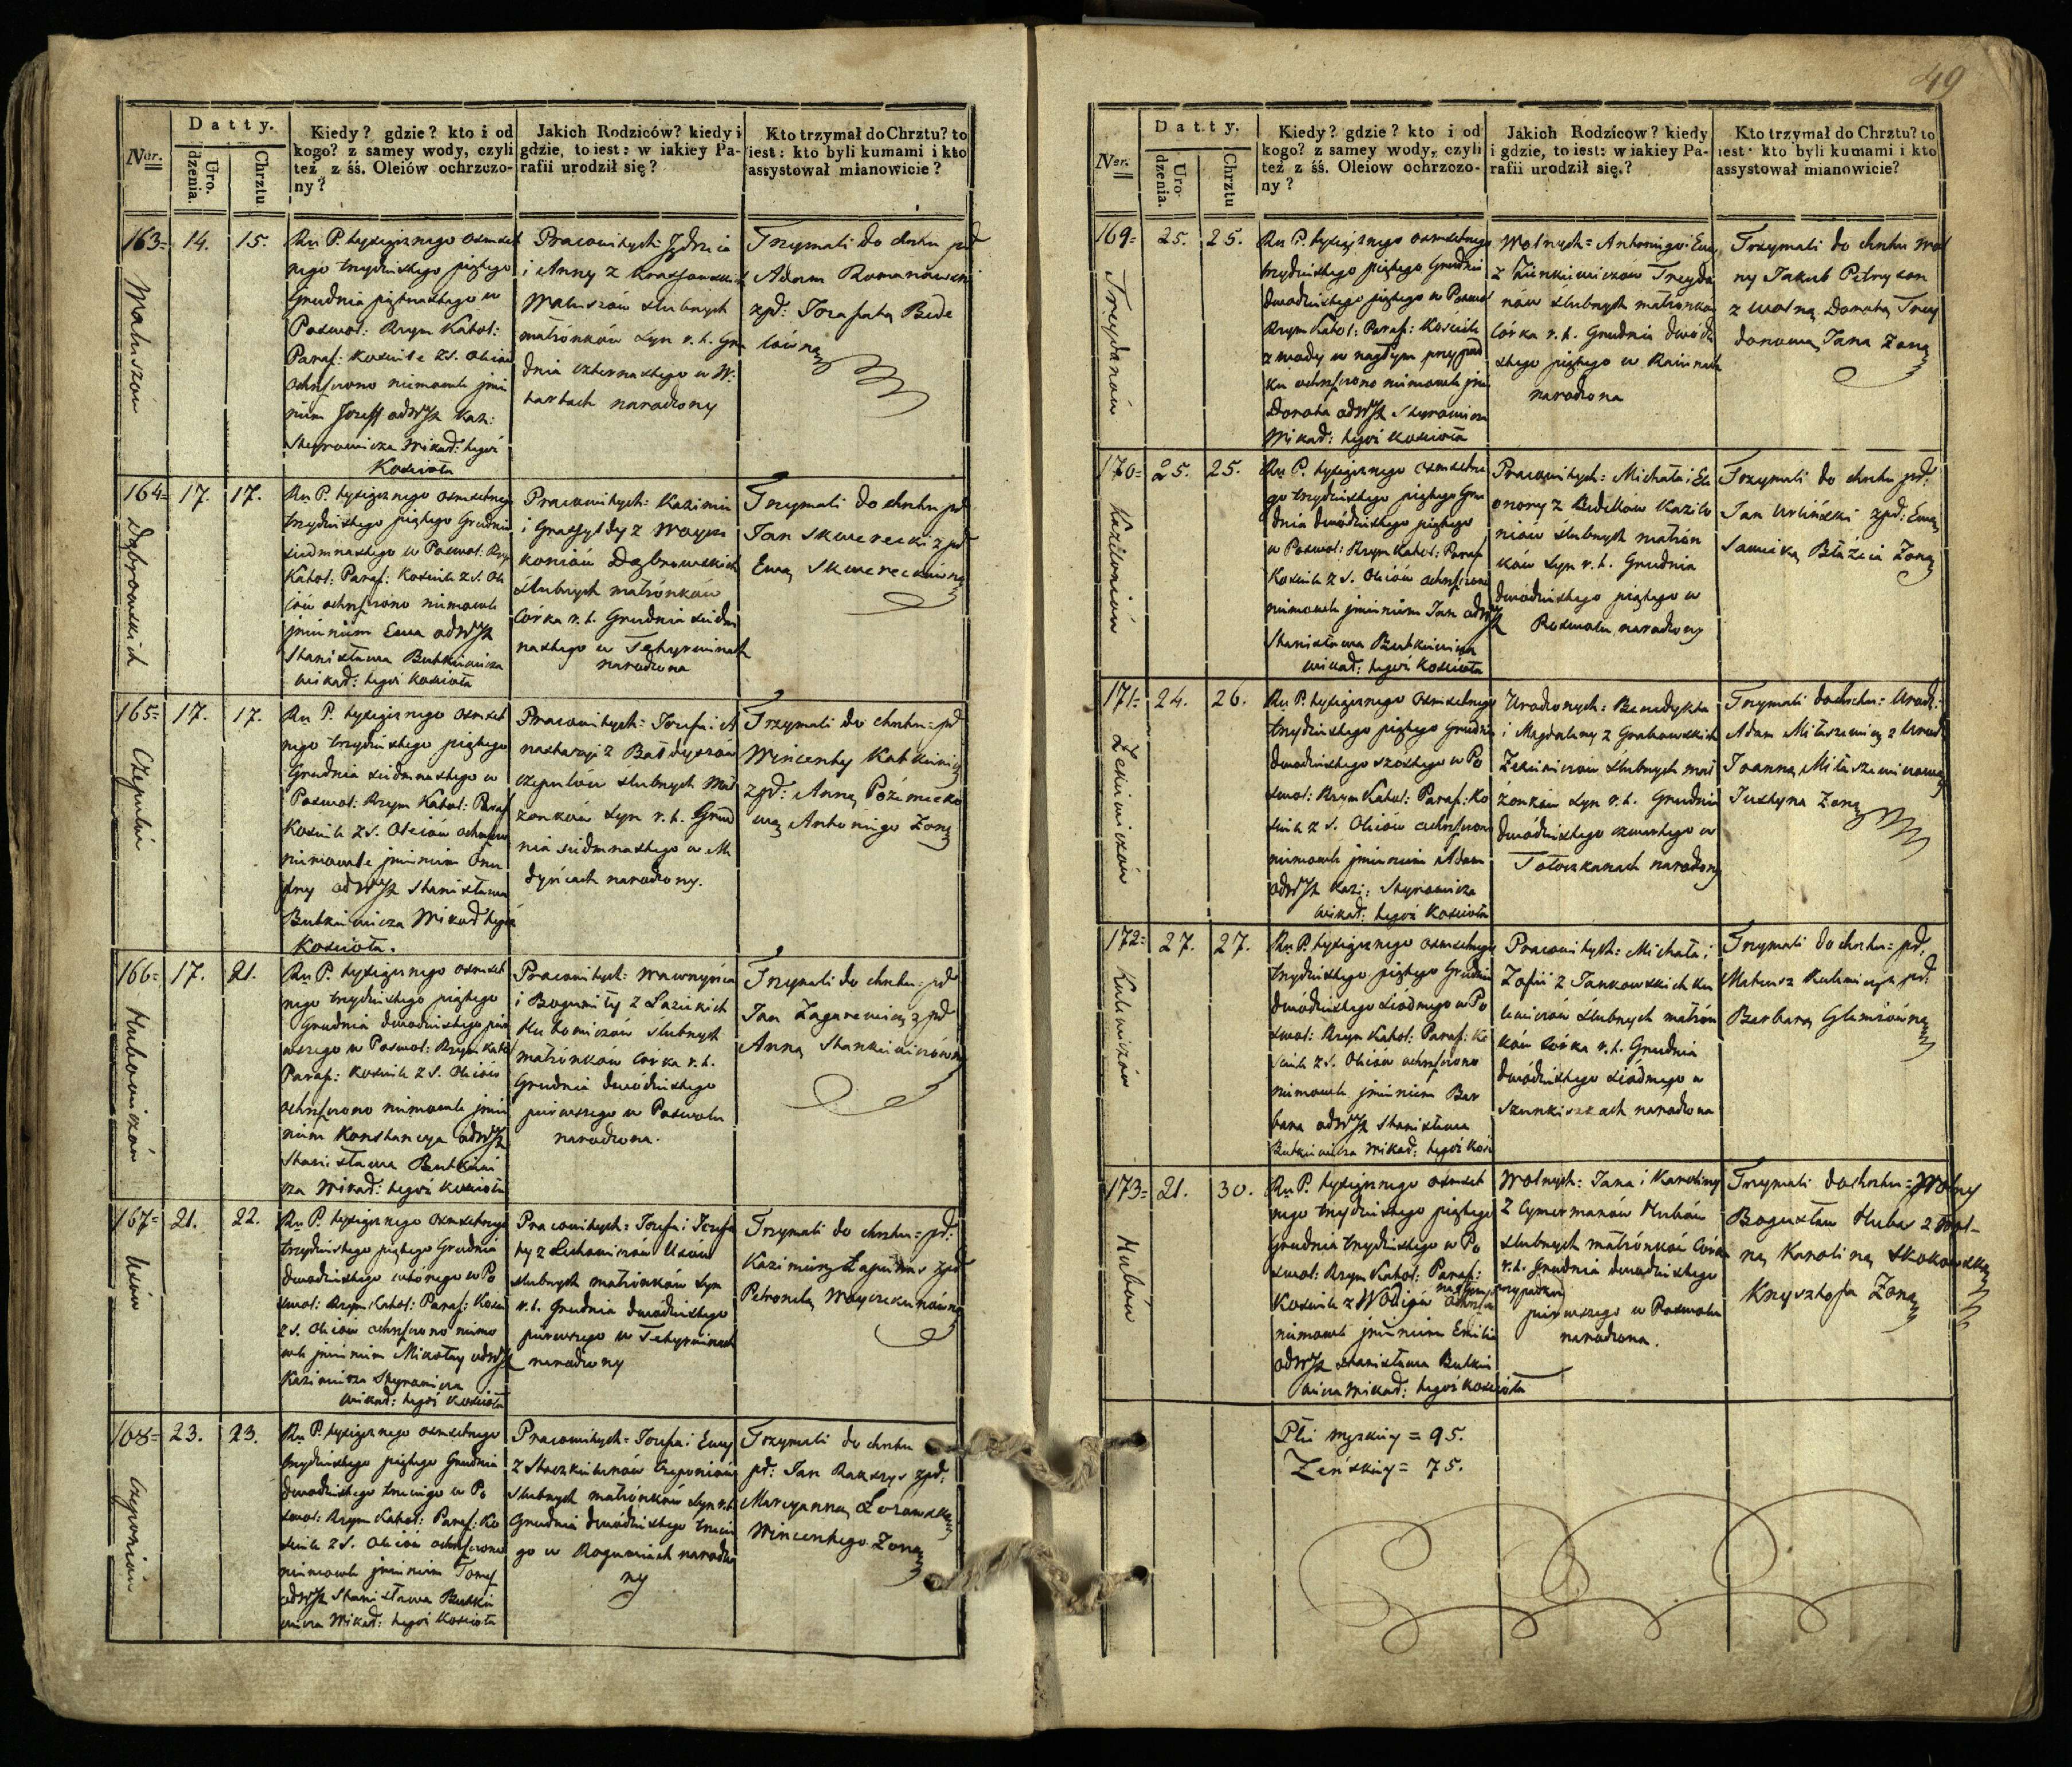 Datty.
Ner.
Uro.
dzenia.
Chrztu
Kiedy? gdzie? kto i od
kogo? z samey wody, czyli
też z śś. Oleiów ochrzczo-
ny?
Jakich Rodziców? kiedy i
gdzie, to iest: w iakiey Pa-
rafii urodził się?
Kto trzymał do Chrztu? to
iest: kto byli kumami i kto
assystował mianowicie?
163=
Matuszów
14.
15.
Ru P. tysiącznego osmset
nego trzydziestego piątego
Grudnia piętnastego w
Poswol: Rzym Katol:
Paraf: Kościele z S. Oleiów
ochrzczono niemowle jmie
niem Jozeff od WJX Kaz:
Skyrowicza Wikad: tegoż
Kościoła
Pracowitych: Jędrzeia
i Anny z
Matuszów slubnych
małżonków Syn r. t. Gru
dnia czternastego w
narodzony
Trzymali do chrztu pd
Adam z
pd: Jozafatą
164=
Dąbrowskich
17.
17.
Ru P. tysiącznego osmsetnego
trzydziestego piątego Grudnia
siedmnastego w Poswol: Rzym
Katol: Paraf: Kościele z S. Ole
iów ochrzczono niemowle
jmieniem Ewa od WJX
Stanisława Butkiewicza
Wikad: tegoż Kościoła
Pracowitych: Kazimie
i z
Dąbrowskich
slubnych małżonków
Córka r. t. Grudnia siedm
nastego w Tetyrwinach
narodzona
Trzymali do chrztu pd
Jan Skwerecki z pd
Ewą Skwereckówną
165=
Czepulów
17.
17.
Ru P. tysiącznego osmset
nego trzydziestego piątego
Grudnia siedmnastego w
Poswol: Rzym Katol: Paraf
Kościele z S. Oleiów ochrzczono
niemowle jmieniem Onu
fry od WJX Stanisława
Butkiewicza Wikad tegoż
Kościoła.
Pracowitych: Jozefa i A
nastazyi z
Czepulów slubnych mał
żonków Syn r. t. Grud
nia siedmnastego w
narodzony.
Trzymali do chrztu = pd
Wincenty
z pd: Anną
Antoniego Żoną
166=
Hubowiczów
17.
21.
Ru P. tysiącznego osmset
nego trzydziestego piątego
Grudnia dwódziestego pier
wszego w Poswol: Rzym Katol
Paraf: Kościele z S. Oleiów
ochrzczono niemowle jmie
niem Konstancya od WJX
Stanisława Butkiewi
cza Wikad: tegoż Kościoła
Pracowitych: Wawrzyńca
i Bogumiły z Łazickich
Hubowiczów slubnych
małżonków Córka r. t.
Grudnia dwódziestego
pierwszego w Poswolu
narodzona.
Trzymali do chrztu = pd
Jan Zagarewicz z pd
Anną Stankiewiczówną
167=
Usów
21.
22.
Ru P. tysiącznego osmsetnego
trzydziestego piątego Grudnia
dwódziestego wtórego w Po
swol: Rzym Katol: Paraf: Kościele
z S. Oleiów ochrzczono niemo
wle jmieniem Mikołay od WJX
Kazimierza Skyrowicza
Wikad: tegoż Kościoła
Pracowitych: Jozefa i Jozefa
ty z Usów
slubnych małżonków Syn
r. t. Grudnia dwódziestego
pierwszego w Tetyrwinach
narodzony
Trzymali do chrztu = pd:
Kazimierz z pd
Petronelą
168=
Czeponiów
23.
23.
Ru P. tysiącznego osmsetnego
trzydziestego piątego Grudnia
dwódziestego trzeciego w Po
swol: Rzym Katol: Paraf: Ko
ściele z S. Oleiów ochrzczono
niemowle jmieniem
od WJX Stanisława Butkie
wicza Wikad: tegoż Kościoła
Pracowitych: Jozefa i Ewy
z Czeponiów
slubnych małżonków Syn r. t.
Grudnia dwódziestego trzecie
go w narodzo
ny
Trzymali do chrztu
pd: Jan z pd:
Maryanną
Wincentego Żoną
49
Datty.
Ner.
Uro-
dzenia.
Chrztu
Kiedy? gdzie? kto i od
kogo? z samey wody, czyli
też z śś. Oleiow ochrzczo-
ny?
Jakich Rodzicow? kiedy
i gdzie, to iest: w iakiey Pa-
rafii urodził się?
Kto trzymał do Chrztu? to
iest kto byli kumami i kto
assystował mianowicie?
169=
Treydanów
25.
25.
Ru P. tysiącznego osmsetnego
trzydziestego piątego Grudnia
dwódziestego piątego w Poswol
Rzym Katol: Paraf: Kościele
z wody w nagłym przypad
ku ochrzczono niemowle jmie
Dorota od WJX Skyrowicza
Wikad: tegoż Kościoła
Wolnych = Antoniego i Ewy
z Treyda
nów slubnych małżonków
Córka r. t. Grudnia dwódzie
stego piątego w
narodzona
Trzymali do chrztu wol
ny Jakub
z wolną Dorotą Trey
danową Jana Żoną
170=
25.
25.
Ru P. tysiącznego osmsetne
go trzydziestego piątego Gru
dnia dwódziestego piątego
w Poswol: Rzym Katol: Paraf
Kościele z S. Oleiów ochrzczono
niemowle jmieniem Jan od WJX
Stanisława Butkiewicza
Wikad: tegoż Kościoła
Pracowitych: Michała i Ele
onory z
slubnych małżon
ków Syn r. t. Grudnia
dwódziestego piątego w
Poswolu narodzony
Trzymali do chrztu pd:
Jan z pd: Ewą
Błażeia Żoną
171=
24.
26.
Ru P. tysiącznego osmsetnego
trzydziestego piątego Grudnia
dwódziestego szóstego w Po
swol: Rzym Katol: Paraf: Ko
ściele z S. Oleiów ochrzczono
niemowle jmieniem Adam
od WJX Kazi: Skyrowicza
Wikad: tegoż Kościoła
Urodzonych: Benedykta
i Magdaleny z Grabowskich
slubnych mał
żonków Syn r. t. Grudnia
dwódziestego czwartego w
narodzony
Trzymali do chrztu = Urodz:
Adam Mituszewicz z Urodz
Joanną Mituszewiczową
Justyna Żoną
172=
Kulewiczów
27.
27.
Ru P. tysiącznego osmsetnego
trzydziestego piątego Grudnia
dwódziestego siódmego w Po
swol: Rzym Katol: Paraf: Ko
ściele z S. Oleiów ochrzczono
niemowle jmieniem Bar
bara od WJX Stanisława
Butkiewicza Wikad: tegoż Kośc
Pracowitych: Michała i
Zofii z Jankowskich Ku
lewiczów slubnych małżon
ków Córka r. t. Grudnia
dwódziestego siódmego w
Szunkiszkach narodzona
Trzymali do chrztu = pd:
Mateusz Kulewicz z pd:
Barbarą
173=
Hubów
21.
30.
Ru P. tysiącznego osmset
nego trzydziestego piątego
Grudnia trzydziestego w Po
swol: Rzym Katol: Paraf:
Kościele z Wody w nagłym przypadku ochrzczo
niemowle jmieniem Emilia
od WJX Stanisława Butkie
wicza Wikad: tegoż Kościoła
Wolnych: Jana i Karoliny
z Cymermanów Hubów
slubnych małżonków Córka
r. t. Grudnia dwódziestego
pierwszego w Poswolu
narodzona.
Trzymali do chrztu = Wolny
Bogusław Hubas z Wol-
ną Karoliną Skokowską
Krysztofa Żoną
Płci męzkiey = 95.
Żeńskiey = 75.